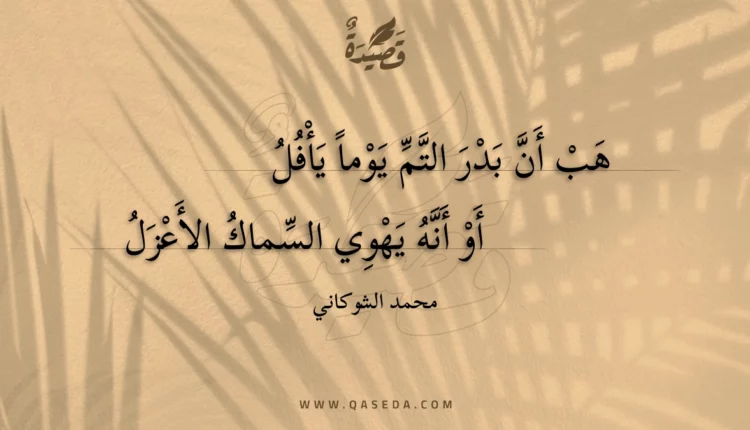 قَصِيدَةٌ
هَبْ أَنَّ بَدْرَ التَّمِّ يَوْماً يَأْفُلُ
أَوْ أَنَّهُ يَهْوِي السِّماكُ الأَعْزَلُ
محمد الشوكاني
WWW.QASEDA.COM